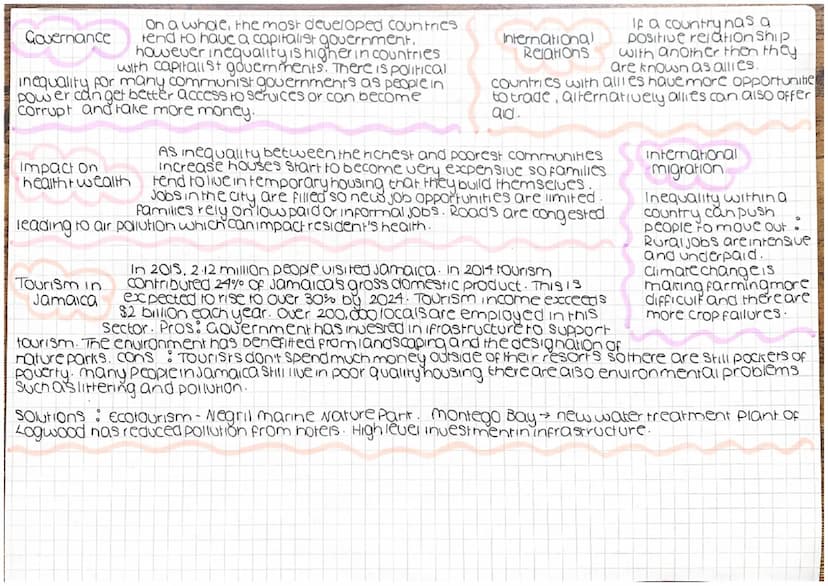 Governance
On a whole, the most developed countries
tend to have a capitalist government,
however inequality is higher in countries
with capitalist governments. There is political
inequality for many communist governments as people in
power can get better access to services or can become
corrupt and take more money.
International
Relations
If a country has a
positive relationship
with another then they
are known as allies.
countries with allies have more opportunitie
to trade, alternatively allies can also offer
aid.
Impact on
health + wealth
As inequality between the richest and poorest communities
increase houses start to become very expensive so families
tend to live in temporary housing that they build themselves.
Jobs in the city are filled so new job opportunities are limited.
Families rely on low paid or informal jobs. Roads are congested
leading to air pollution which can impact resident's health.
International
migration
Inequality within a
country can push
people to move out:
Rural jobs are intensive
and underpaid.
Climate change is
making farming more
difficult and there are
more crop failures.
Tourism in
Jamaica
In 2015, 2.12 million people visited Jamaica. In 2014 tourism
contributed 24% of Jamaica's gross domestic product. This is
expected to rise to over 30% by 2024. Tourism income exceeds
$2 billion each year. Over 200,000 locals are employed in this
sector. Pros: Government has invested in ifrastructure to support
tourism. The environment has benefitted from landscaping and the designation of
nature parks. cons: Tourists don't spend much money outside of their resorts so there are still pockets of
poverty. many people in Jamaica still live in poor quality housing there are also environmental problems
such as littering and pollution.
Solutions: Ecotourism - Negril marine Nature Park. Montego Bay → new water treatment plant of
Logwood has reduced pollution from hotels. High level investment in infrastructure.